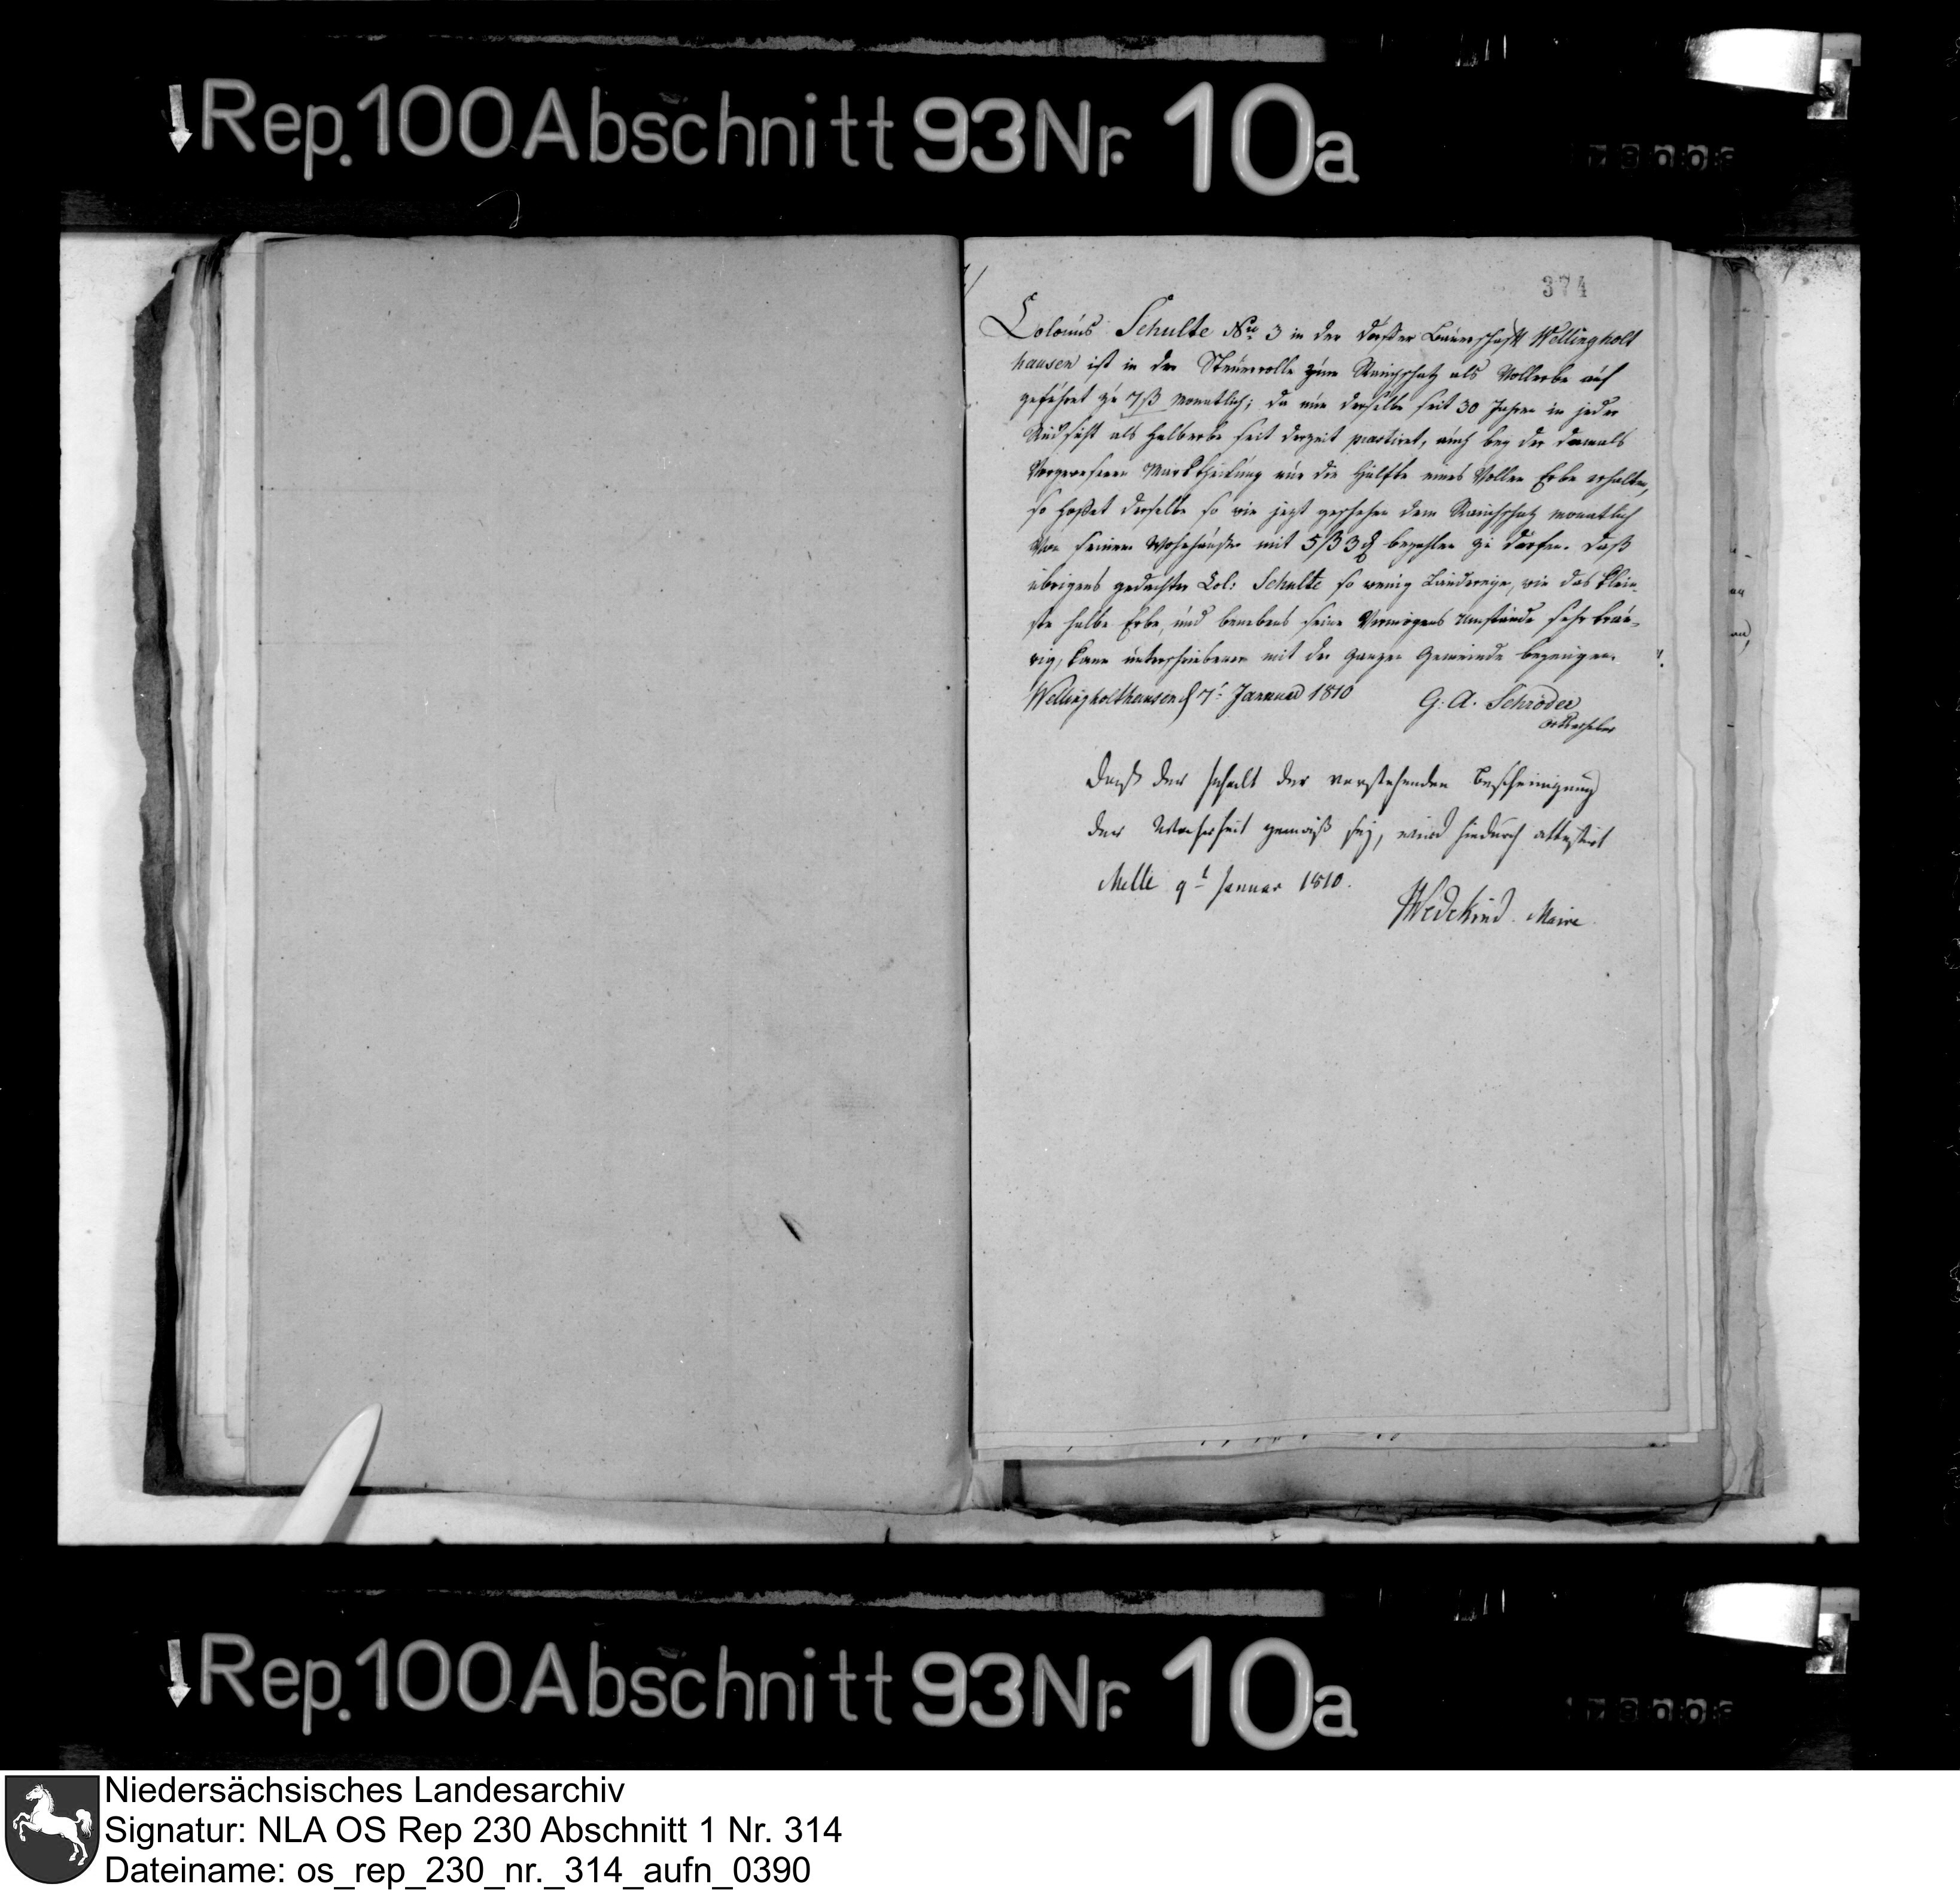 Rep. 100 Abschnitt 93 Nr. 10a
374
Colonus Schulte No 3 in der Bauerschaft Wellingholt
hausen ist in der Steuerrolle zum Rauchschatz als Vollerbe auf
geführet zu 7ß Monatlich; da nun derselbe seit 30 Jahren in jeder
Rücksicht als Halberbe seit derzeit praestiret, auch bey der damals
Vorgewesenen Marktheilung nur die Hälfte eines Vollen Erbe erhalten,
so hoffet derselbe so wie jezt geschehen dem Rauchschatz monatlich
Von seinem Wohnhause mit 5ß 3₰ bezahlen zu dörfen. Daß
übrigens gedachter Col: Schulte so wenig Ländereyen, wie das klein-
ste halbe Erbe, und benebens seine Vermögens Umstände sehr trau-
rig, kann unterschriebener mit der ganzen Gemeinde bezeugen.
Wellingholthausen d 7t Januar 1810 G. A. Schröder
Vorsteher
Daß der Inhalt der vorstehenden Bescheinigung
der Wahrheit gemäß sey, wird hiedurch attestirt
Melle 9t Januar 1810.
Wedekind Maire
Rep. 100 Abschnitt 93 Nr. 10a
Niedersächsisches Landesarchiv
Signatur: NLA OS Rep 230 Abschnitt 1 Nr. 314
Dateiname: os_rep_230_nr._314_aufn_0390